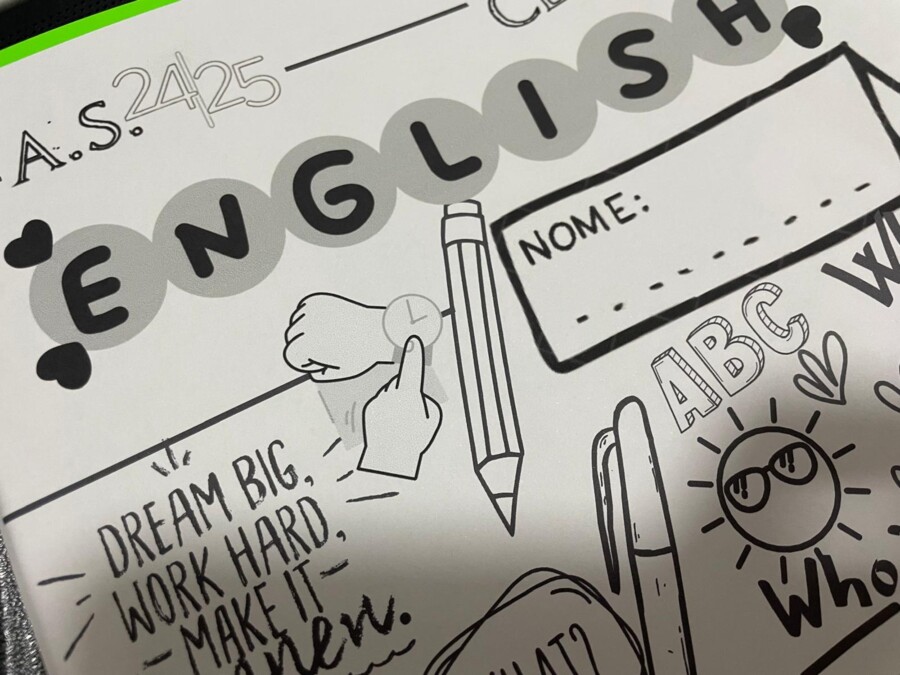 A.S. 24/25
ENGLISH
NOME:
ABC
DREAM BIG,
WORK HARD,
MAKE IT
Who